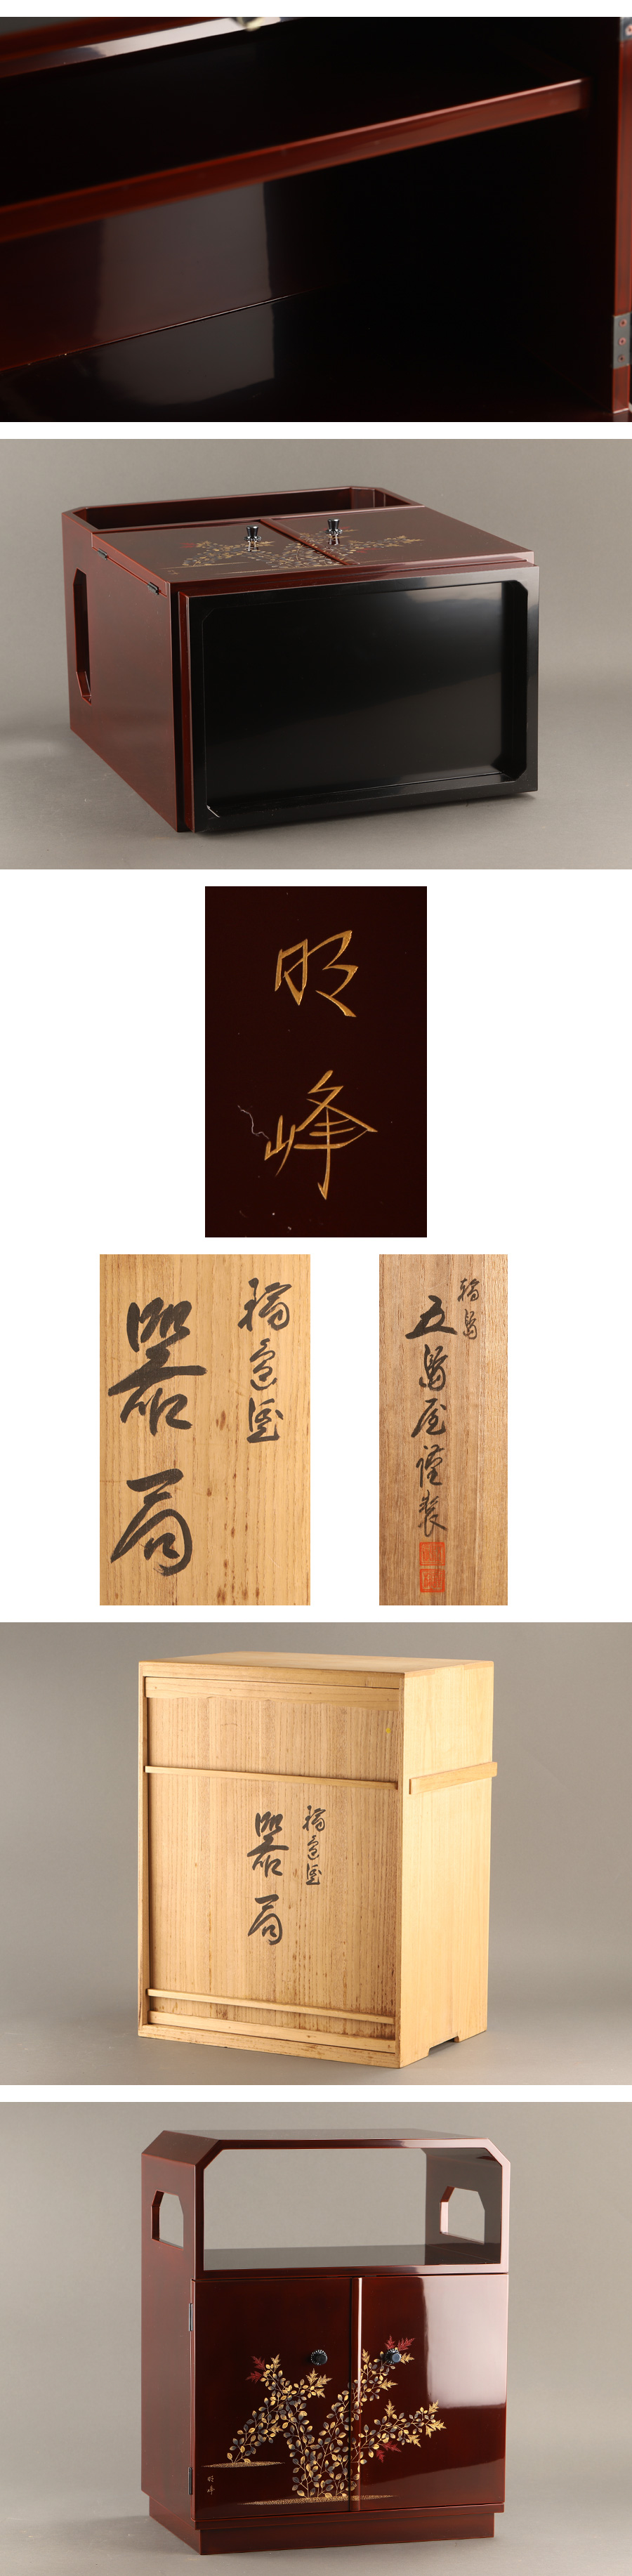 明
峰
輪島塗
器局
輪島
五島屋謹製
輪島塗
器局
明峰